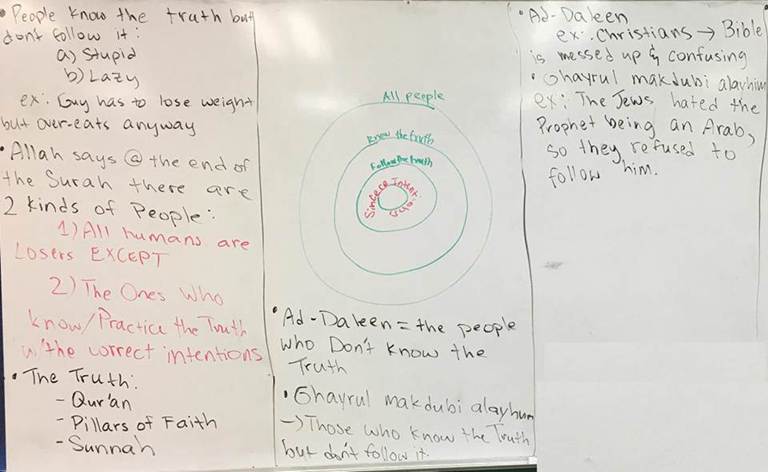 • People know the truth but
don't follow it:
a) Stupid
b) Lazy
ex: Guy has to lose weight
but over-eats anyway
• Allah says @ the end of
the Surah there are
2 kinds of People:
1) All humans are
Losers EXCEPT
2) The Ones Who
know/Practice the Truth
w/the correct intentions
• The Truth:
- Qur'an
- Pillars of Faith
- Sunnah
All people
Know the truth
Follow the truth
Sincere Intentions
• Ad-Daleen = the people
who Don't know the
Truth
• Ghayrul makdubi alayhum
→ Those who know the Truth
but don't follow it.
• Ad-Daleen
ex: Christians → Bible
is messed up & confusing
• Ghayrul makdubi alayhim
ex: The Jews hated the
Prophet being an Arab,
so they refused to
follow him.